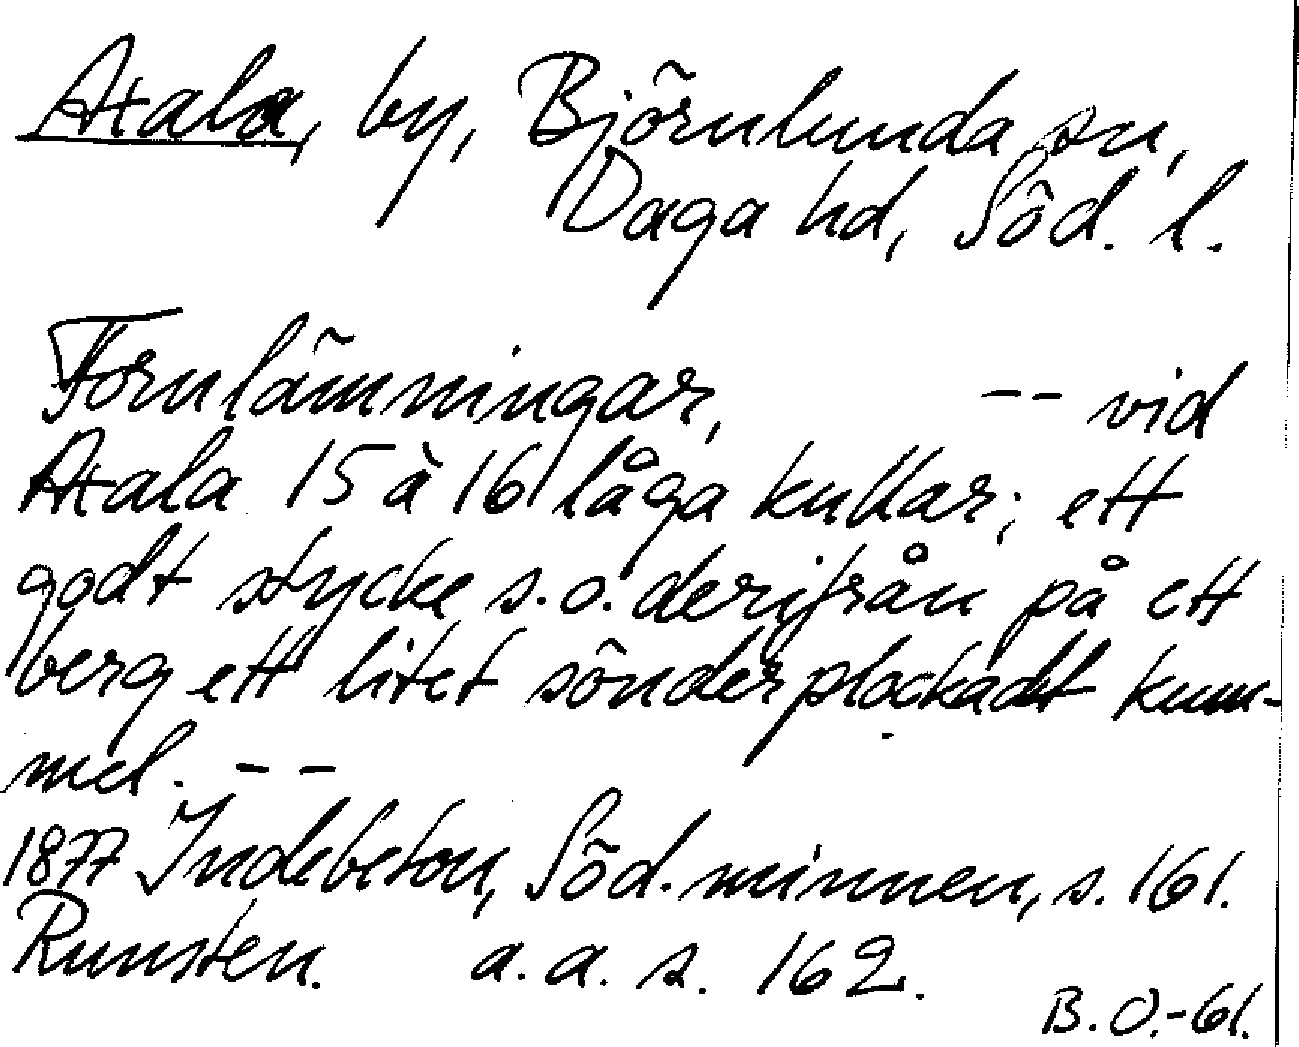 Axala, by, Björnlunda sn,
Daga hd, Söd. l.
Fornlämningar, -- vid
Axala 15 à 16 låga kullar; ett
godt stycke s.o. derifrån på ett
berg ett litet sönderplockadt kum-
mel. --
1877 Indebetou, Söd. minnen, s. 161.
Runsten. a.a. s. 162.
B.O.-61.